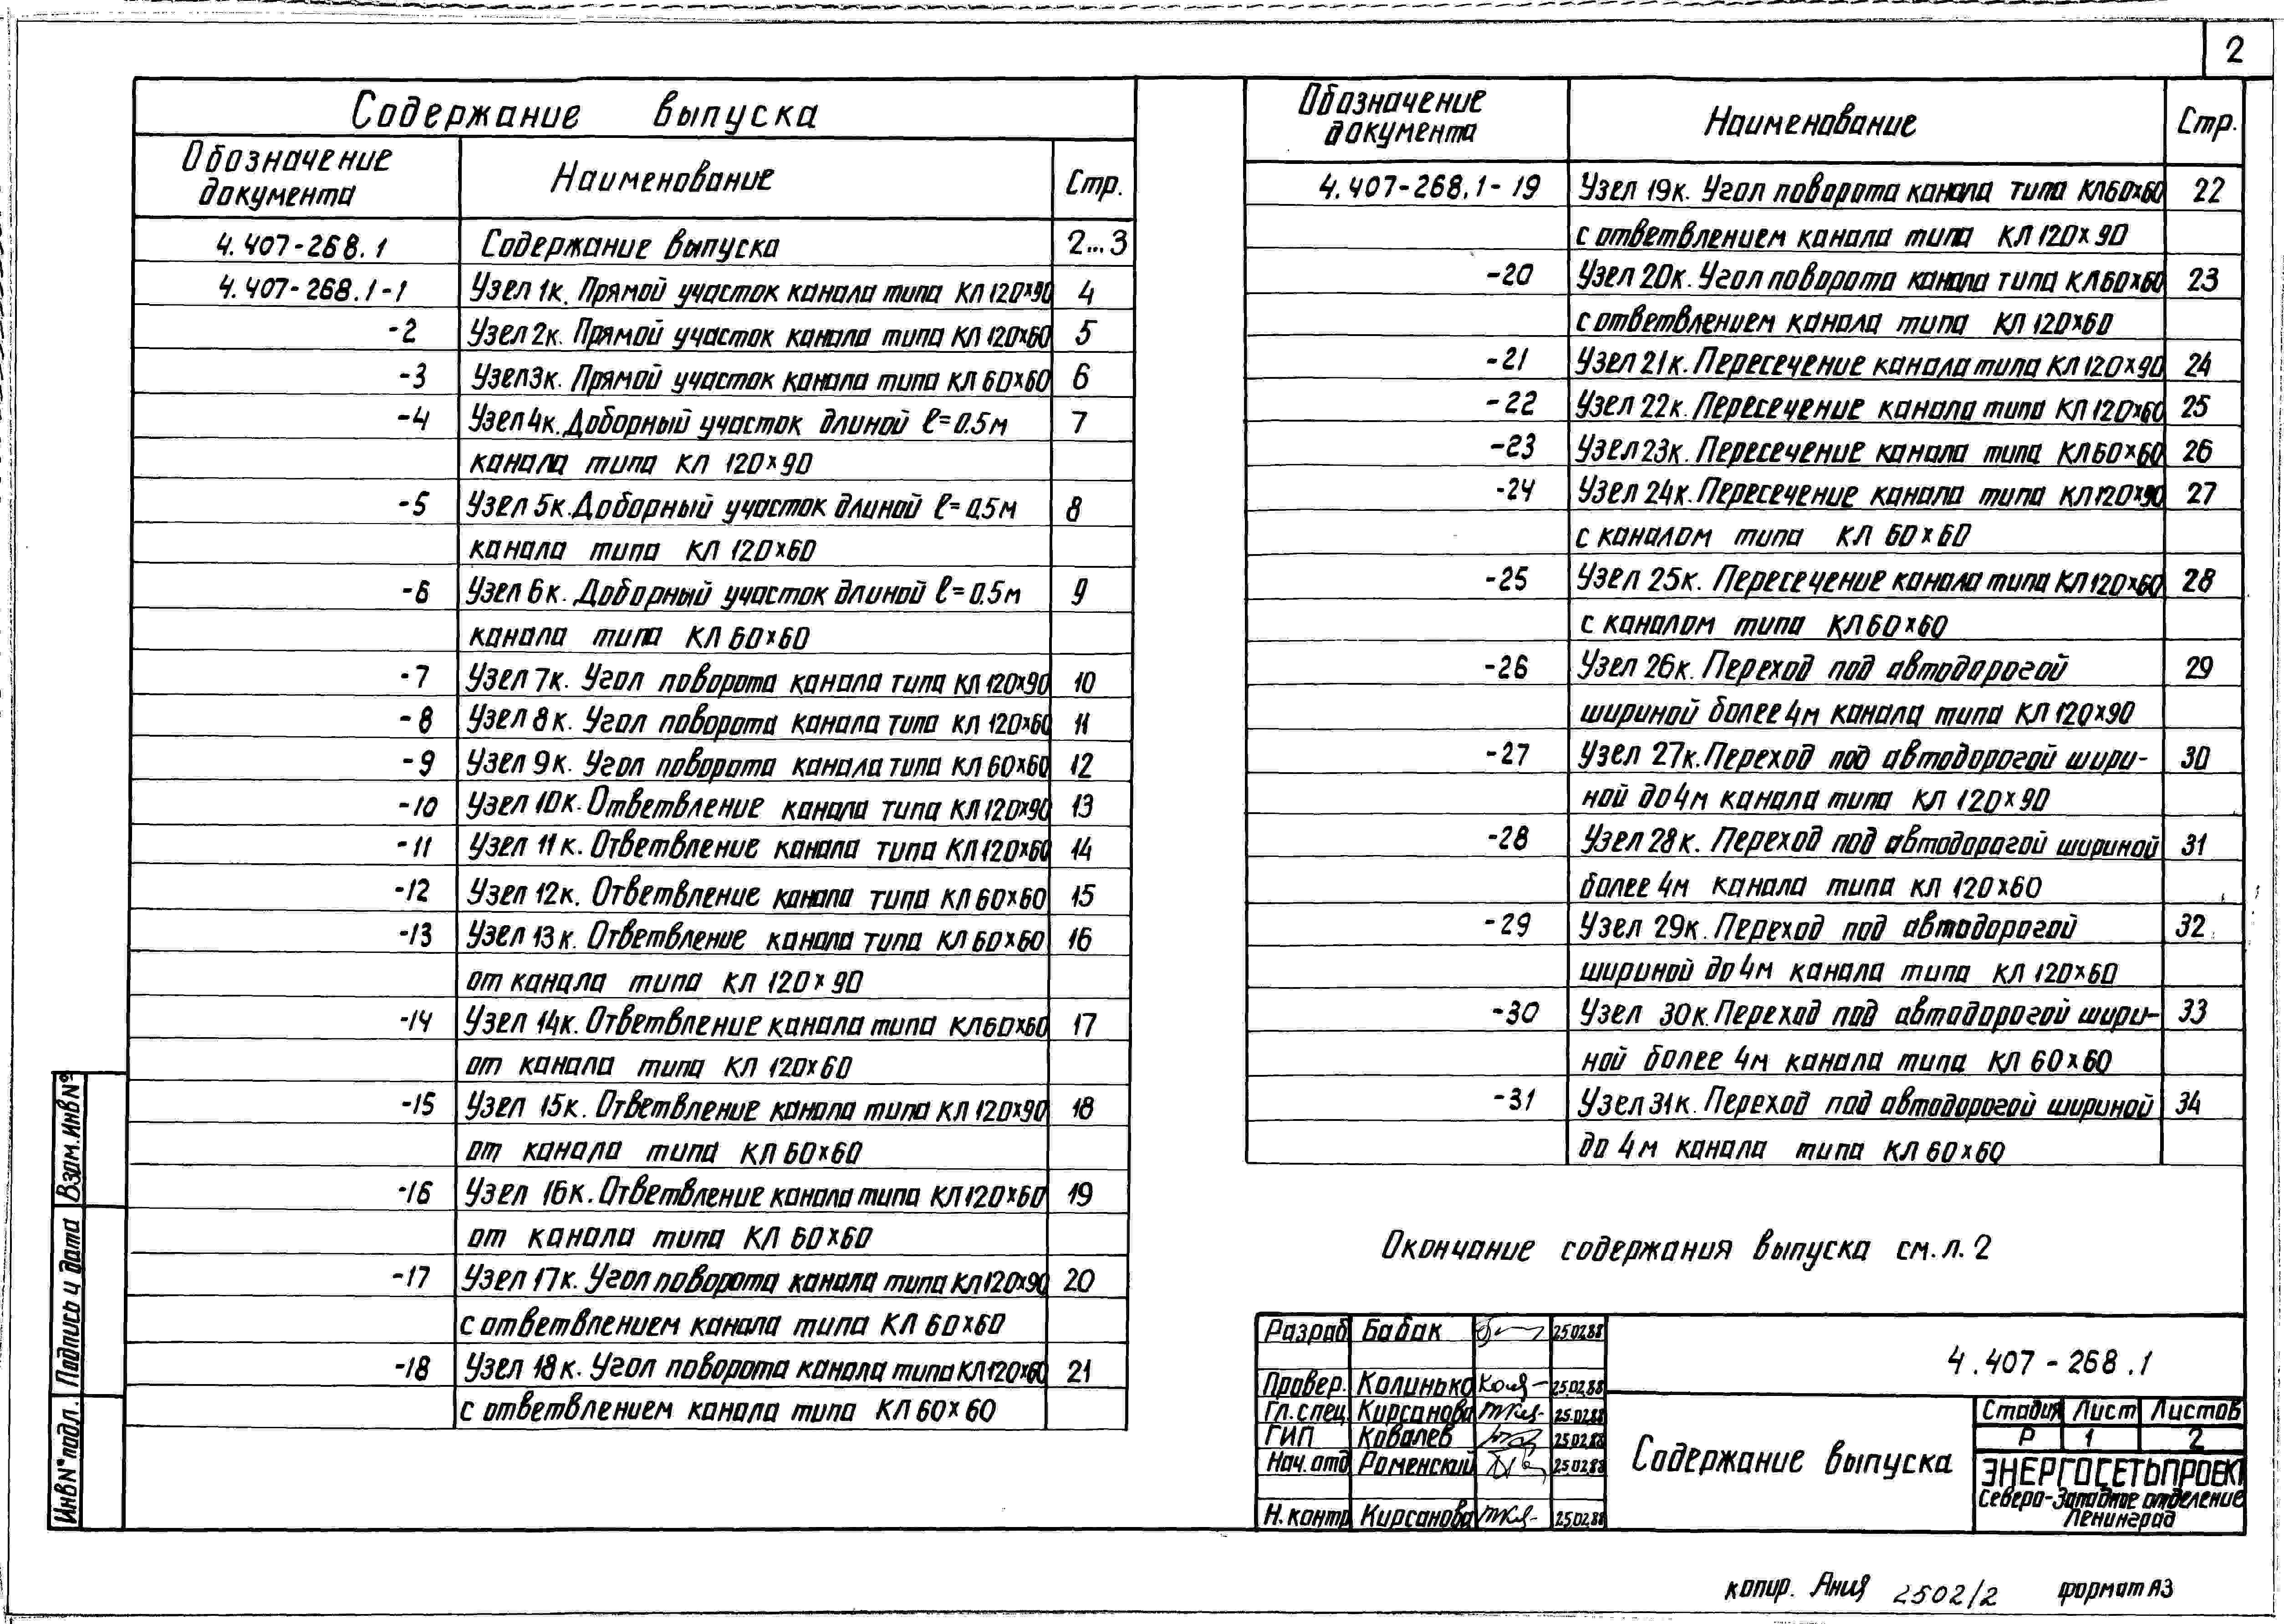 2
Содержание выпуска
Обозначение документа Наименование Стр.
4.407-268.1 Содержание выпуска 2...3
4.407-268.1-1 Узел 1к. Прямой участок канала типа КЛ 120×90 4
-2 Узел 2к. Прямой участок канала типа КЛ 120×60 5
-3 Узел 3к. Прямой участок канала типа КЛ 60×60 6
-4 Узел 4к. Доборный участок длиной ℓ=0.5м 7
канала типа КЛ 120×90
-5 Узел 5к. Доборный участок длиной ℓ=0,5м 8
канала типа КЛ 120×60
-6 Узел 6к. Доборный участок длиной ℓ=0.5м 9
канала типа КЛ 60×60
-7 Узел 7к. Угол поворота канала типа КЛ 120×90 10
-8 Узел 8к. Угол поворота канала типа КЛ 120×60 11
-9 Узел 9к. Угол поворота канала типа КЛ 60×60 12
-10 Узел 10к. Ответвление канала типа КЛ 120×90 13
-11 Узел 11к. Ответвление канала типа КЛ 120×60 14
-12 Узел 12к. Ответвление канала типа КЛ 60×60 15
-13 Узел 13к. Ответвление канала типа КЛ 60×60 16
от канала типа КЛ 120×90
-14 Узел 14к. Ответвление канала типа КЛ60×60 17
от канала типа КЛ 120×60
-15 Узел 15к. Ответвление канала типа КЛ 120×90 18
от канала типа КЛ 60×60
-16 Узел 16к. Ответвление канала типа КЛ120×60 19
от канала типа КЛ 60×60
-17 Узел 17к. Угол поворота канала типа КЛ120×90 20
с ответвлением канала типа КЛ 60×60
-18 Узел 18к. Угол поворота канала типа КЛ120×60 21
с ответвлением канала типа КЛ 60×60
Обозначение документа Наименование Стр.
4.407-268.1-19 Узел 19к. Угол поворота канала типа КЛ60×60 22
с ответвлением канала типа КЛ 120×90
-20 Узел 20к. Угол поворота канала типа КЛ60×60 23
с ответвлением канала типа КЛ 120×60
-21 Узел 21к. Пересечение канала типа КЛ 120×90 24
-22 Узел 22к. Пересечение канала типа КЛ 120×60 25
-23 Узел 23к. Пересечение канала типа КЛ60×60 26
-24 Узел 24к. Пересечение канала типа КЛ120×90 27
с каналом типа КЛ 60×60
-25 Узел 25к. Пересечение канала типа КЛ120×60 28
с каналом типа КЛ60×60
-26 Узел 26к. Переход под автодорогой 29
шириной более 4м канала типа КЛ 120×90
-27 Узел 27к. Переход под автодорогой шири- 30
ной до 4м канала типа КЛ 120×90
-28 Узел 28к. Переход под автодорогой шириной 31
более 4м канала типа КЛ 120×60
-29 Узел 29к. Переход под автодорогой 32
шириной до 4м канала типа КЛ 120×60
-30 Узел 30к. Переход под автодорогой шири- 33
ной более 4м канала типа КЛ 60×60
-31 Узел 31к. Переход под автодорогой шириной 34
до 4м канала типа КЛ 60×60
Окончание содержания выпуска см. л. 2
Взам. инв №
Подпись и дата
Инв № подл.
Разраб. Бабак 25.02.88
Провер. Калинько 25.02.88
Гл. спец. Кирсанова 25.02.88
ГИП Ковалев 25.02.88
Нач. отд Роменский 25.02.88
Н. контр Кирсанова 25.02.88
4.407-268.1
Содержание выпуска
Стадия Лист Листов
Р 1 2
ЭНЕРГОСЕТЬПРОЕКТ
Северо-Западное отделение
Ленинград
копир. Ания 2502/2 формат А3